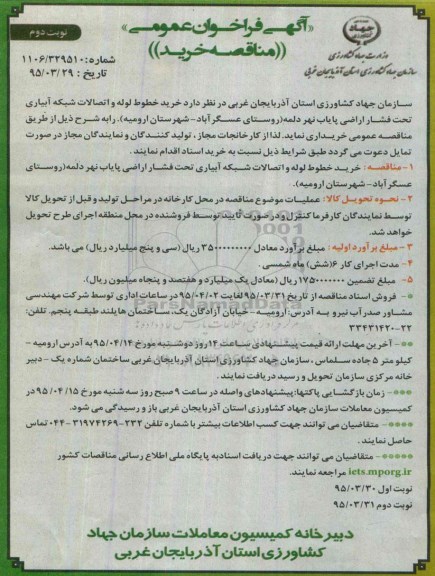 «آگهی فراخوان عمومی»
((مناقصه خرید))
نوبت دوم
جهاد
وزارت جهاد کشاورزی
سازمان جهاد کشاورزی استان آذربایجان غربی
شماره: ۱۱۰۶/۳۲۹۵۱۰
تاریخ: ۹۵/۰۳/۲۹
سازمان جهاد کشاورزی استان آذربایجان غربی در نظر دارد خرید خطوط لوله و اتصالات شبکه آبیاری
تحت فشار اراضی پایاب نهر دلمه(روستای عسگر آباد- شهرستان ارومیه). را به شرح ذیل از طریق
مناقصه عمومی خریداری نماید. لذا از کارخانجات مجاز، تولید کنندگان و نمایندگان مجاز در صورت
تمایل دعوت می گردد طبق شرایط ذیل نسبت به خرید اسناد اقدام نمایند.
۱- مناقصه: خرید خطوط لوله و اتصالات شبکه آبیاری تحت فشار اراضی پایاب نهر دلمه(روستای
عسگر آباد- شهرستان ارومیه).
۲- نحوه تحویل کالا: عملیات موضوع مناقصه در محل کارخانه در مراحل تولید و قبل از تحویل کالا
توسط نمایندگان کارفرما کنترل و در صورت تایید توسط فروشنده در محل منطقه اجرای طرح تحویل
خواهد شد.
۳- مبلغ برآورد اولیه: مبلغ برآورد معادل ۳۵۰۰۰۰۰۰۰۰۰ ریال (سی و پنج میلیارد ریال) می باشد.
۴- مدت اجرای کار ۶(شش) ماه شمسی.
۵- مبلغ تضمین ۱۷۵۰۰۰۰۰۰۰ ریال (معادل یک میلیارد و هفتصد و پنجاه میلیون ریال).
* - فروش اسناد مناقصه از تاریخ ۹۵/۰۳/۳۱ لغایت ۹۵/۰۴/۰۲ در ساعات اداری توسط شرکت مهندسی
مشاور صدر آب نیرو به آدرس: ارومیه - خیابان آزادگان یک، ساختمان هایلند طبقه پنجم. تلفن:
۳۳۴۳۱۴۲۰-۲۲
** - آخرین مهلت ارائه قیمت پیشنهادی ساعت ۱۴ روز دوشنبه مورخ ۹۵/۰۴/۱۴ به آدرس ارومیه -
کیلومتر ۵ جاده سلماس، سازمان جهاد کشاورزی استان آذربایجان غربی ساختمان شماره یک - دبیر
خانه مرکزی سازمان تحویل و رسید دریافت نمایند.
*** - زمان بازگشایی پاکتها: پیشنهادهای واصله در ساعت ۹ صبح روز سه شنبه مورخ ۹۵/۰۴/۱۵ در
کمیسیون معاملات سازمان جهاد کشاورزی استان آذربایجان غربی باز و رسیدگی می شود.
**** - متقاضیان می توانند جهت کسب اطلاعات بیشتر با شماره تلفن ۲۳۲-۳۱۹۷۴۲۶۹-۰۴۴ تماس
حاصل نمایند.
***** - متقاضیان می توانند جهت دریافت اسناد به پایگاه ملی اطلاع رسانی مناقصات کشور
iets.mporg.ir مراجعه نمایند.
نوبت اول ۹۵/۰۳/۳۰
نوبت دوم ۹۵/۰۳/۳۱
دبیرخانه کمیسیون معاملات سازمان جهاد
کشاورزی استان آذربایجان غربی